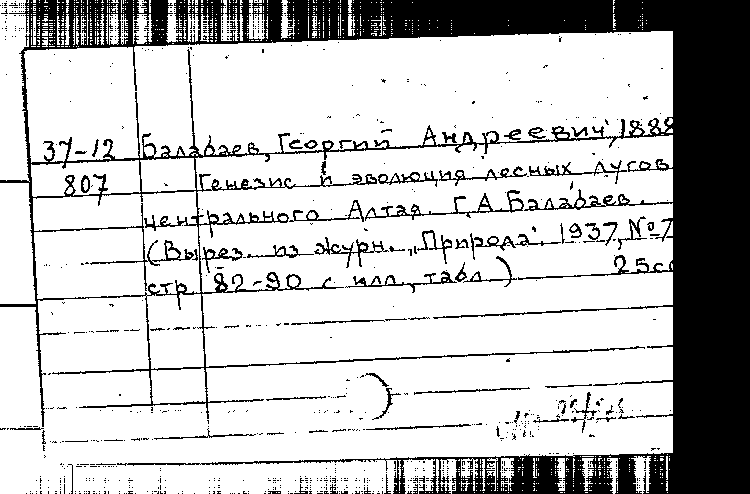 37-12 Балабаев, Георгий Андреевич, 1888
807 Генезис и эволюция лесных лугов
центрального Алтая. Г.А. Балабаев.
(Вырез. из журн. „Природа". 1937, №7
стр 82-90 с илл., табл.) 25см